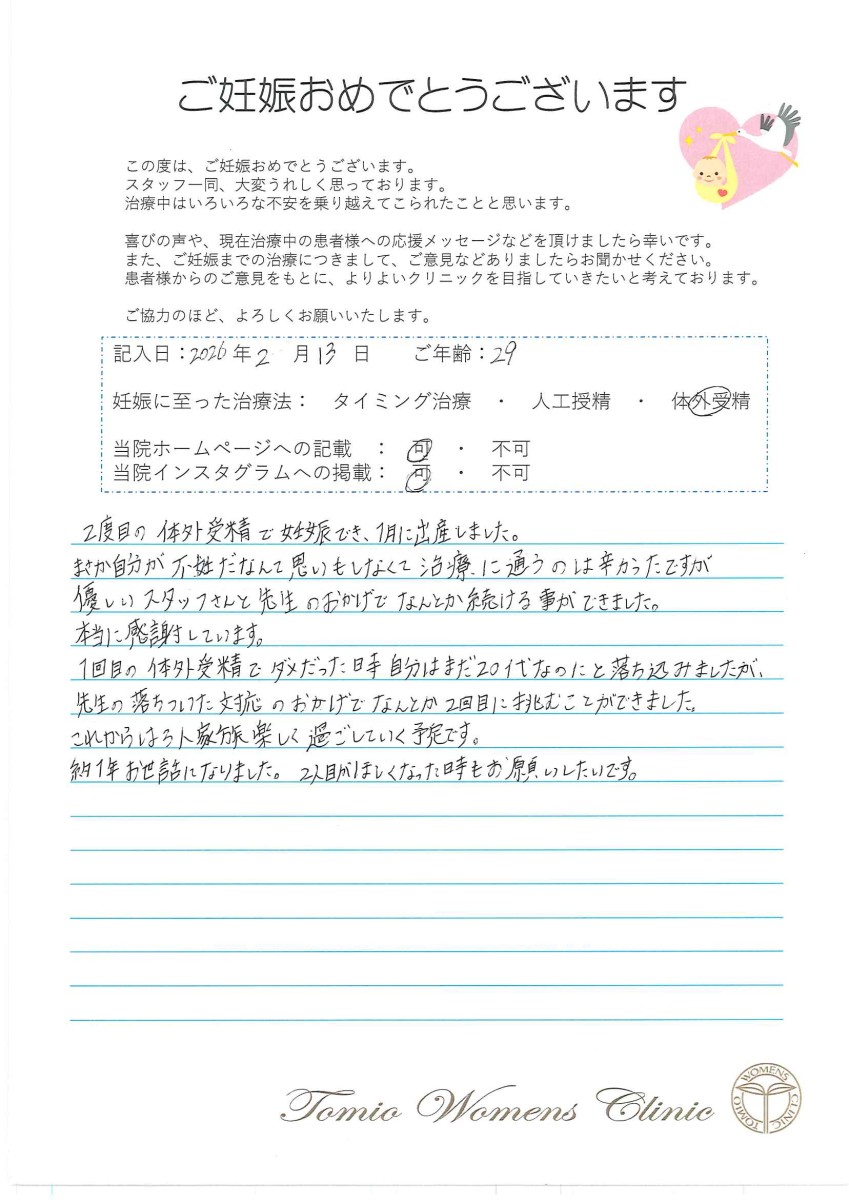 ご妊娠おめでとうございます
この度は、ご妊娠おめでとうございます。
スタッフ一同、大変うれしく思っております。
治療中はいろいろな不安を乗り越えてこられたことと思います。
喜びの声や、現在治療中の患者様への応援メッセージなどを頂けましたら幸いです。
また、ご妊娠までの治療につきまして、ご意見などありましたらお聞かせください。
患者様からのご意見をもとに、よりよいクリニックを目指していきたいと考えております。
ご協力のほど、よろしくお願いいたします。
記入日：2026年2月13日 ご年齢：29
妊娠に至った治療法： タイミング治療 ・ 人工授精 ・ 体外受精
当院ホームページへの記載 ： 可 ・ 不可
当院インスタグラムへの掲載： 可 ・ 不可
2度目の体外受精で妊娠でき、1月に出産しました。
まさか自分が不妊だなんて思いもしなくて治療に通うのは辛かったですが
優しいスタッフさんと先生のおかげでなんとか続ける事ができました。
本当に感謝しています。
1回目の体外受精でダメだった時自分はまだ20代なのにと落ち込みましたが、
先生の落ちついた対応のおかげでなんとか2回目に挑むことができました。
これからは3人家族楽しく過ごしていく予定です。
約1年お世話になりました。2人目がほしくなった時もお願いしたいです。
Tomio Womens Clinic
TOMIO WOMENS CLINIC